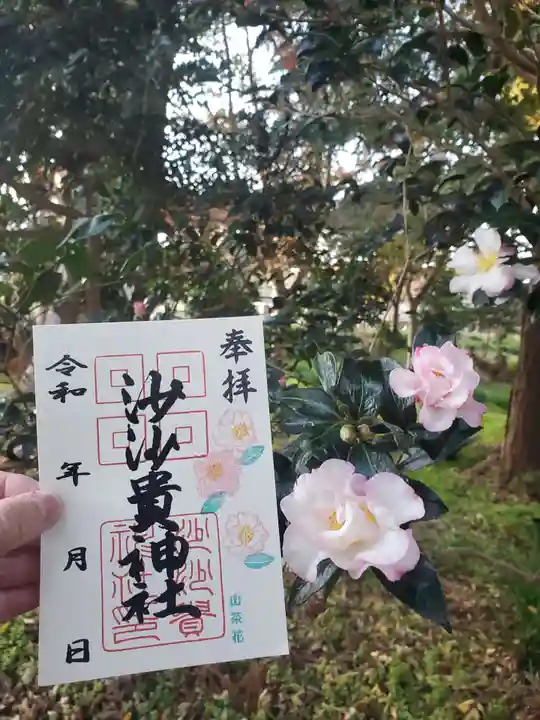 奉拝
沙沙貴神社
令和 年 月 日
山茶花